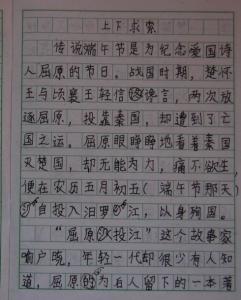 上下求索
传说端午节是为纪念爱国诗
人屈原的节日。战国时期,楚怀
王与顷襄王轻信谗言,两次放
逐屈原,投靠秦国,却遭到了亡
国之运。屈原眼睁睁地看着秦国
灭楚国,却无能为力,痛不欲生,
便在农历五月初五(端午节那天)
自投入汨罗江,以身殉国。
“屈原投江”这个故事家
喻户晓,年轻一代却很少有人知
道,屈原的为后人留下的一本著